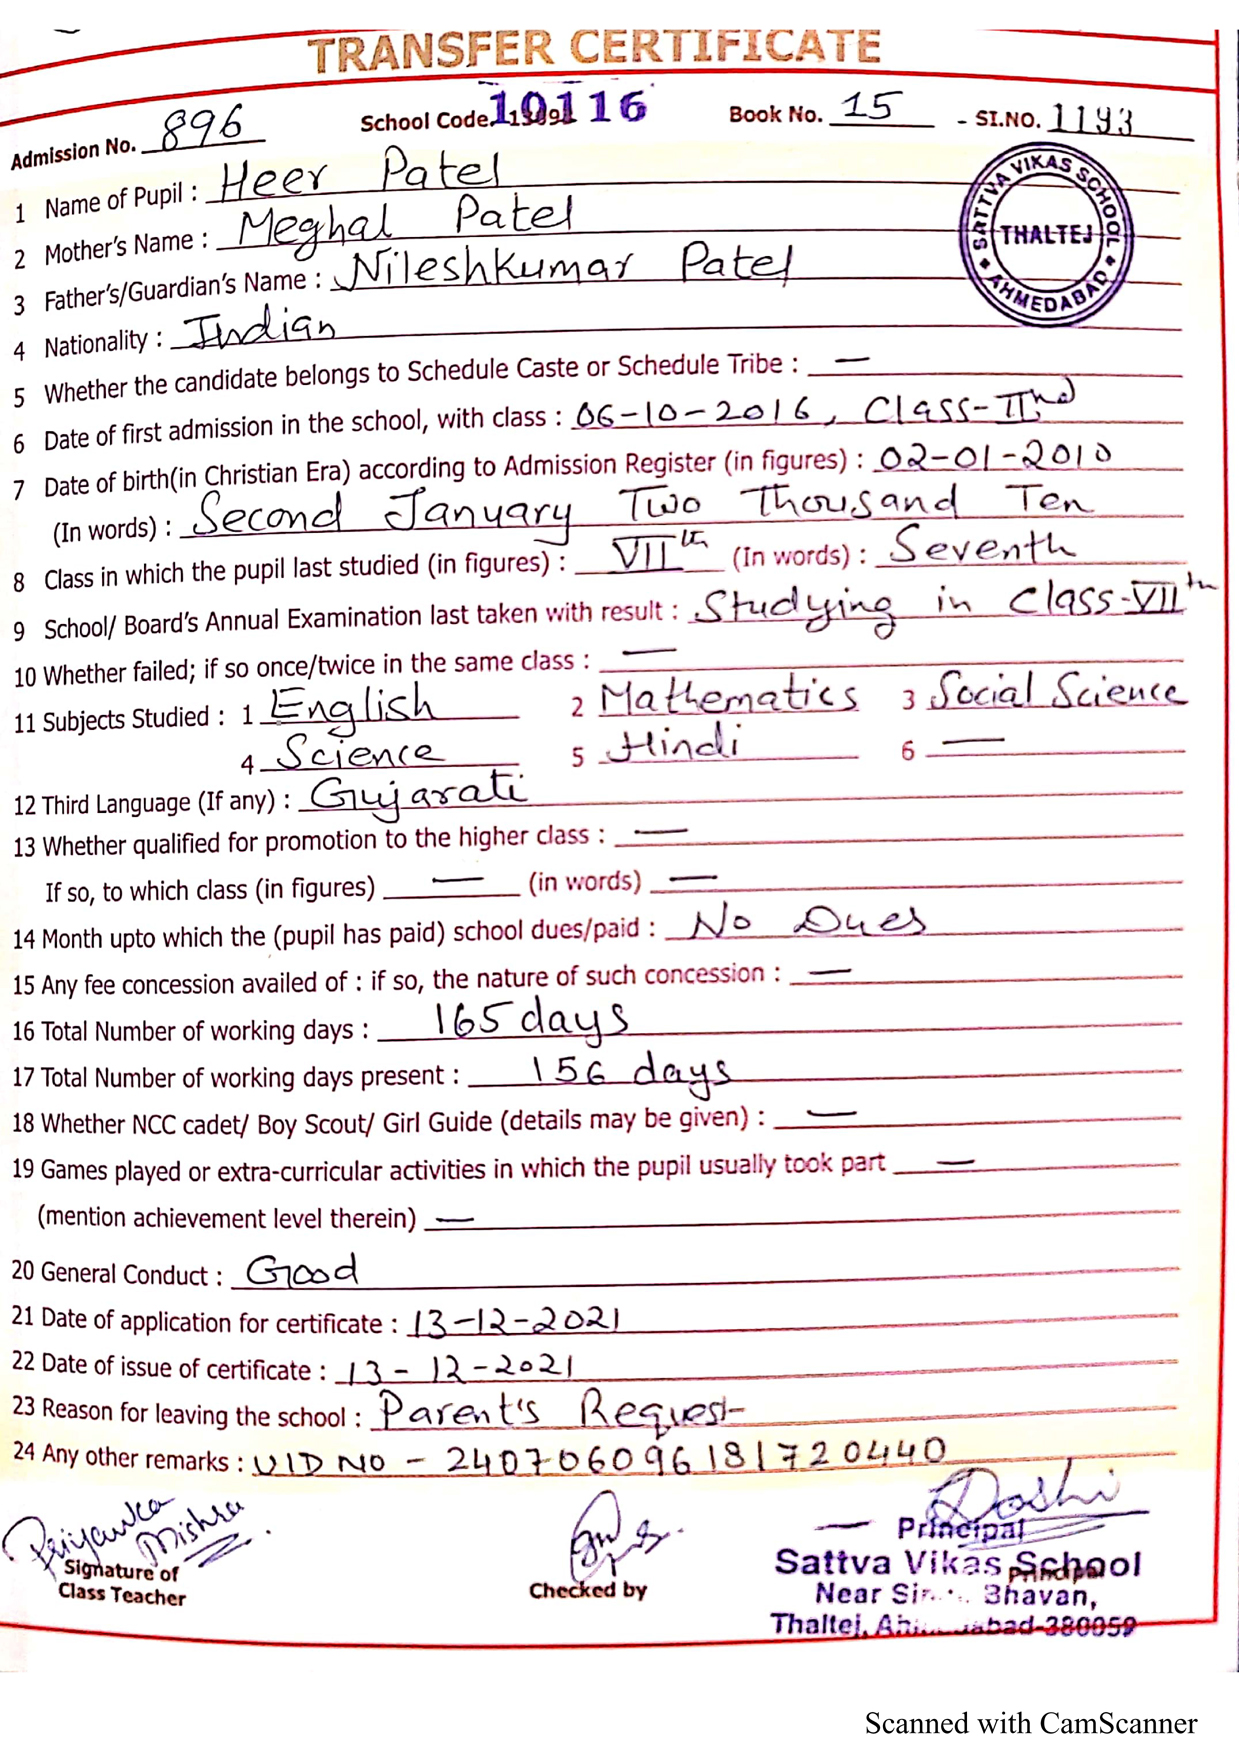 TRANSFER CERTIFICATE
Admission No. 896 School Code 10116 Book No. 15 - SI.NO. 1193
SATTVA VIKAS SCHOOL THALTEJ AHMEDABAD
1 Name of Pupil : Heer Patel
2 Mother's Name : Meghal Patel
3 Father's/Guardian's Name : Nileshkumar Patel
4 Nationality : Indian
5 Whether the candidate belongs to Schedule Caste or Schedule Tribe : —
6 Date of first admission in the school, with class : 06-10-2016, Class-IInd
7 Date of birth(in Christian Era) according to Admission Register (in figures) : 02-01-2010
(In words) : Second January Two Thousand Ten
8 Class in which the pupil last studied (in figures) : VIIth (In words) : Seventh
9 School/ Board's Annual Examination last taken with result : Studying in Class-VIIth
10 Whether failed; if so once/twice in the same class : —
11 Subjects Studied : 1 English 2 Mathematics 3 Social Science
4 Science 5 Hindi 6 —
12 Third Language (If any) : Gujarati
13 Whether qualified for promotion to the higher class : —
If so, to which class (in figures) — (in words) —
14 Month upto which the (pupil has paid) school dues/paid : No Dues
15 Any fee concession availed of : if so, the nature of such concession : —
16 Total Number of working days : 165 days
17 Total Number of working days present : 156 days
18 Whether NCC cadet/ Boy Scout/ Girl Guide (details may be given) : —
19 Games played or extra-curricular activities in which the pupil usually took part —
(mention achievement level therein) —
20 General Conduct : Good
21 Date of application for certificate : 13-12-2021
22 Date of issue of certificate : 13-12-2021
23 Reason for leaving the school : Parent's Request
24 Any other remarks : UID NO - 240706096181720440
Priyanka Mishra Doshi
Signature of Class Teacher
Checked by
Principal
Sattva Vikas School
Principal
Near Bhavan,
Thaltej, 380059
Scanned with CamScanner